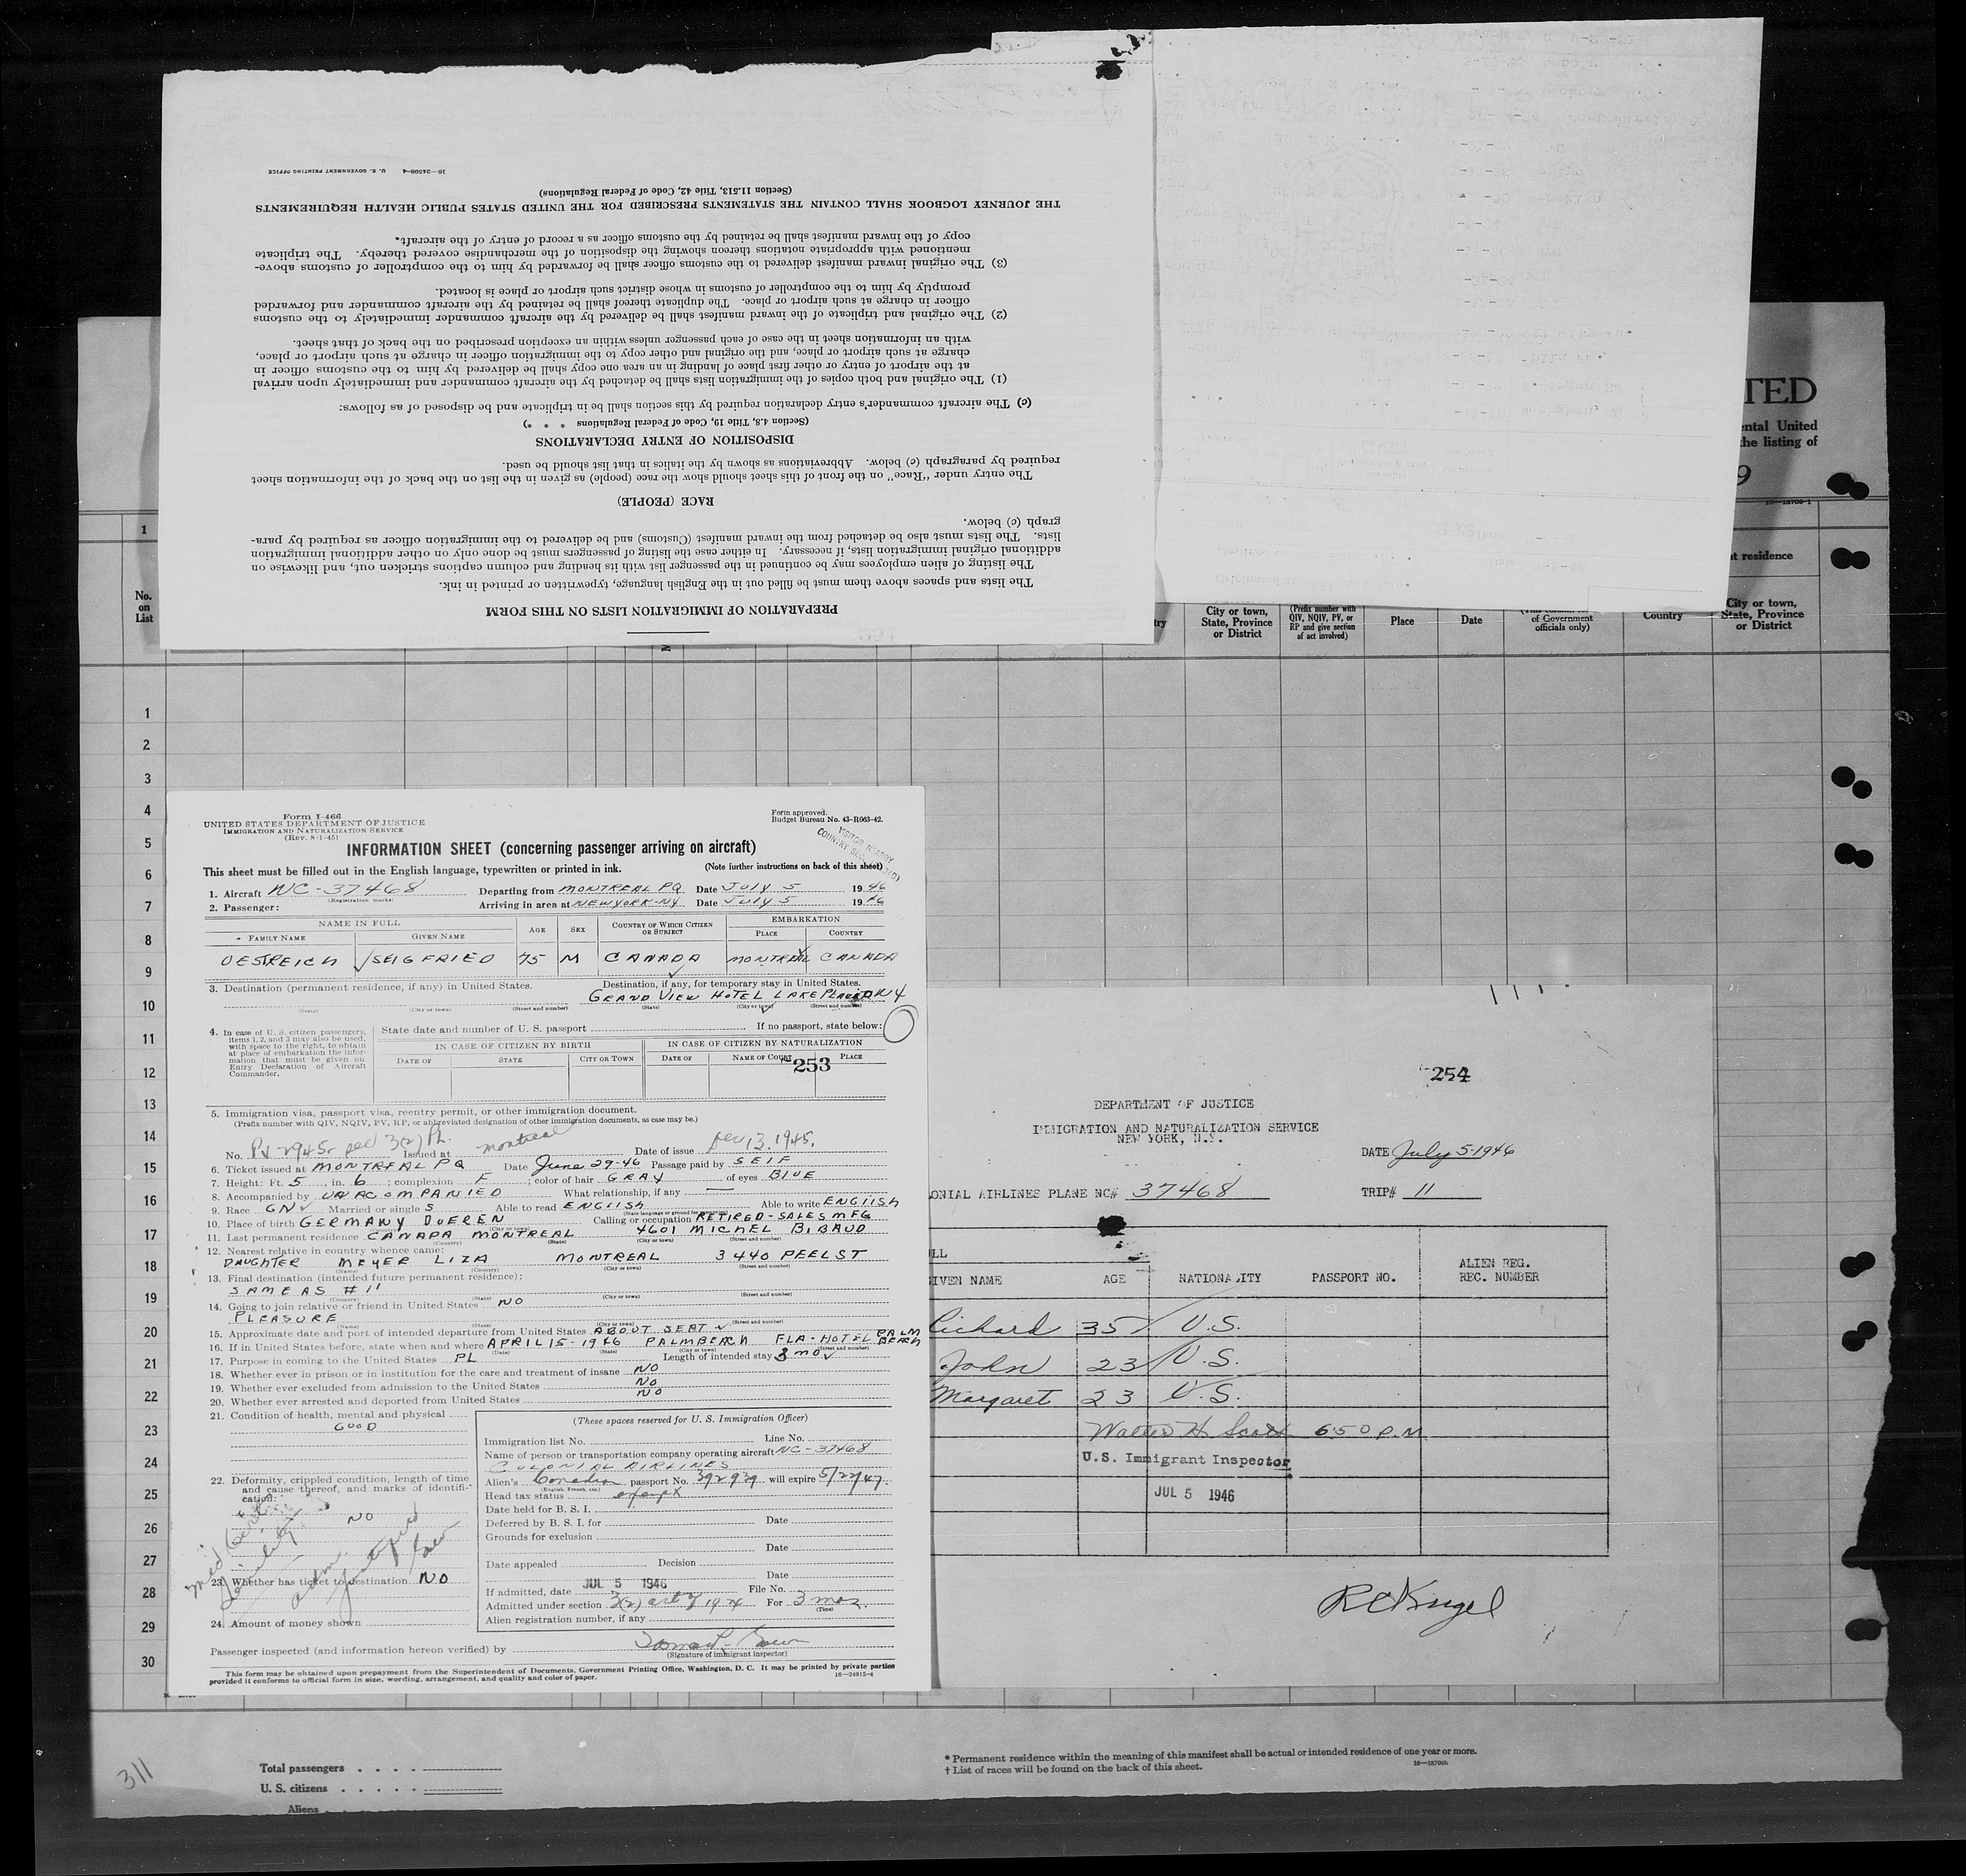 16—24598-4 U. S. GOVERNMENT PRINTING OFFICE
(Section 11.513, Title 42, Code of Federal Regulations)
THE JOURNEY LOGBOOK SHALL CONTAIN THE STATEMENTS PRESCRIBED FOR THE UNITED STATES PUBLIC HEALTH REQUIREMENTS
copy of the inward manifest shall be retained by the customs officer as a record of entry of the aircraft.
mentioned with appropriate notations thereon showing the disposition of the merchandise covered thereby. The triplicate
(3) The original inward manifest delivered to the customs officer shall be forwarded by him to the comptroller of customs above-
promptly by him to the comptroller of customs in whose district such airport or place is located.
officer in charge at such airport or place. The duplicate thereof shall be retained by the aircraft commander and forwarded
(2) The original and triplicate of the inward manifest shall be delivered by the aircraft commander immediately to the customs
with an information sheet in the case of each passenger unless within an exception prescribed on the back of that sheet.
charge at such airport or place, and the original and other copy to the immigration officer in charge at such airport or place,
at the airport of entry or other first place of landing in an area one copy shall be delivered by him to the customs officer in
(1) The original and both copies of the immigration lists shall be detached by the aircraft commander and immediately upon arrival
(c) The aircraft commander's entry declaration required by this section shall be in triplicate and be disposed of as follows:
(Section 4.8, Title 19, Code of Federal Regulations * * *)
DISPOSITION OF ENTRY DECLARATIONS
required by paragraph (c) below. Abbreviations as shown by the italics in that list should be used.
The entry under "Race" on the front of this sheet should show the race (people) as given in the list on the back of the information sheet
RACE (PEOPLE)
graph (c) below.
lists. The lists must also be detached from the inward manifest (Customs) and be delivered to the immigration officer as required by para-
additional original immigration lists, if necessary. In either case the listing of passengers must be done only on other additional immigration
The listing of alien employees may be continued in the passenger list with its heading and column captions stricken out, and likewise on
The lists and spaces above them must be filled out in the English language, typewritten or printed in ink.
PREPARATION OF IMMIGRATION LISTS ON THIS FORM
TED
ental United
the listing of
9
16—18709-1
1
t residence
No. on List
City or town, State, Province or District
(Prefix number with QIV, NQIV, PV, or RP and give section of act involved)
Place
Date
of Government officials only)
Country
City or town, State, Province or District
1
2
3
4
5
6
7
8
9
10
11
12
13
14
15
16
17
18
19
20
21
22
23
24
25
26
27
28
29
30
Form I-466
UNITED STATES DEPARTMENT OF JUSTICE
IMMIGRATION AND NATURALIZATION SERVICE
(Rev. 8-1-45)
Form approved.
Budget Bureau No. 43-R063-42.
INFORMATION SHEET (concerning passenger arriving on aircraft)
This sheet must be filled out in the English language, typewritten or printed in ink. (Note further instructions on back of this sheet)
1. Aircraft NC-37468 Departing from MONTREAL PQ Date JULY 5 1946
(Registration marks)
2. Passenger: Arriving in area at NEW YORK-NY Date JULY 5 1946
NAME IN FULL AGE SEX COUNTRY OF WHICH CITIZEN OR SUBJECT EMBARKATION
FAMILY NAME GIVEN NAME PLACE COUNTRY
OESTREICH SEIGFRIED 75 M CANADA MONTREAL CANADA
3. Destination (permanent residence, if any) in United States. Destination, if any, for temporary stay in United States.
GRAND VIEW HOTEL LAKE PLACID NY
(State) (City or town) (Street and number) (State) (City or town) (Street and number)
4. In case of U. S. citizen passengers, items 1, 2, and 3 may also be used, with space to the right, to obtain at place of embarkation the information that must be given on Entry Declaration of Aircraft Commander.
State date and number of U. S. passport If no passport, state below:
IN CASE OF CITIZEN BY BIRTH IN CASE OF CITIZEN BY NATURALIZATION
DATE OF STATE CITY OR TOWN DATE OF NAME OF COURT PLACE
253
5. Immigration visa, passport visa, reentry permit, or other immigration document.
(Prefix number with QIV, NQIV, PV, RP, or abbreviated designation of other immigration documents, as case may be.)
No. PV 2945 sec 3(2) PL. Issued at Montreal Date of issue Dec 13, 1945.
6. Ticket issued at MONTREAL PQ Date June 29-46 Passage paid by SELF
7. Height: Ft. 5, in. 6; complexion F; color of hair GRAY of eyes BLUE
8. Accompanied by UNACOMPANIED What relationship, if any —
9. Race GN Married or single S Able to read ENGLISH Able to write ENGLISH
10. Place of birth GERMANY DUEREN Calling or occupation RETIRED-SALES MFG
11. Last permanent residence CANADA MONTREAL 4601 MICHEL BIBAUD
12. Nearest relative in country whence came:
DAUGHTER MEYER LIZA MONTREAL 3440 PEEL ST
13. Final destination (intended future permanent residence):
SAME AS #11
14. Going to join relative or friend in United States NO
PLEASURE
15. Approximate date and port of intended departure from United States ABOUT SEPT
16. If in United States before, state when and where APRIL 15-1946 PALM BEACH FLA-HOTEL PALM BEACH
17. Purpose in coming to the United States PL Length of intended stay 3 mo
18. Whether ever in prison or in institution for the care and treatment of insane NO
19. Whether ever excluded from admission to the United States NO
20. Whether ever arrested and deported from United States NO
21. Condition of health, mental and physical
GOOD
22. Deformity, crippled condition, length of time and cause thereof, and marks of identification:
NO
23. Whether has ticket to destination NO
24. Amount of money shown
(These spaces reserved for U. S. Immigration Officer)
Immigration list No. Line No.
Name of person or transportation company operating aircraft NC-37468
COLONIAL AIRLINES
Alien's Canadian passport No. 392939 will expire 5/22/47.
(English, French, etc.)
Head tax status exempt
Date held for B. S. I.
Deferred by B. S. I. for Date
Grounds for exclusion
Date
Date appealed Decision
Date
If admitted, date JUL 5 1946 File No.
Admitted under section 3(2) act of 1924 For 3 mos.
(Time)
Alien registration number, if any
Passenger inspected (and information hereon verified) by
(Signature of immigrant inspector)
This form may be obtained upon prepayment from the Superintendent of Documents, Government Printing Office, Washington, D. C. It may be printed by private parties
provided it conforms to official form in size, wording, arrangement, and quality and color of paper. 16—24915-4
254
DEPARTMENT OF JUSTICE
IMMIGRATION AND NATURALIZATION SERVICE
NEW YORK, N.Y.
DATE July 5-1946
ONIAL AIRLINES PLANE NC# 37468 TRIP# 11
LL
IVEN NAME AGE NATIONALITY PASSPORT NO. ALIEN REG. REC. NUMBER
Richard 35 U.S.
John 23 U.S.
Margaret 23 U.S.
Walter H. Scott 650 P.M
U.S. Immigrant Inspector
JUL 5 1946
311
Total passengers . . . .
U. S. citizens . . . . .
Aliens
* Permanent residence within the meaning of this manifest shall be actual or intended residence of one year or more.
† List of races will be found on the back of this sheet.